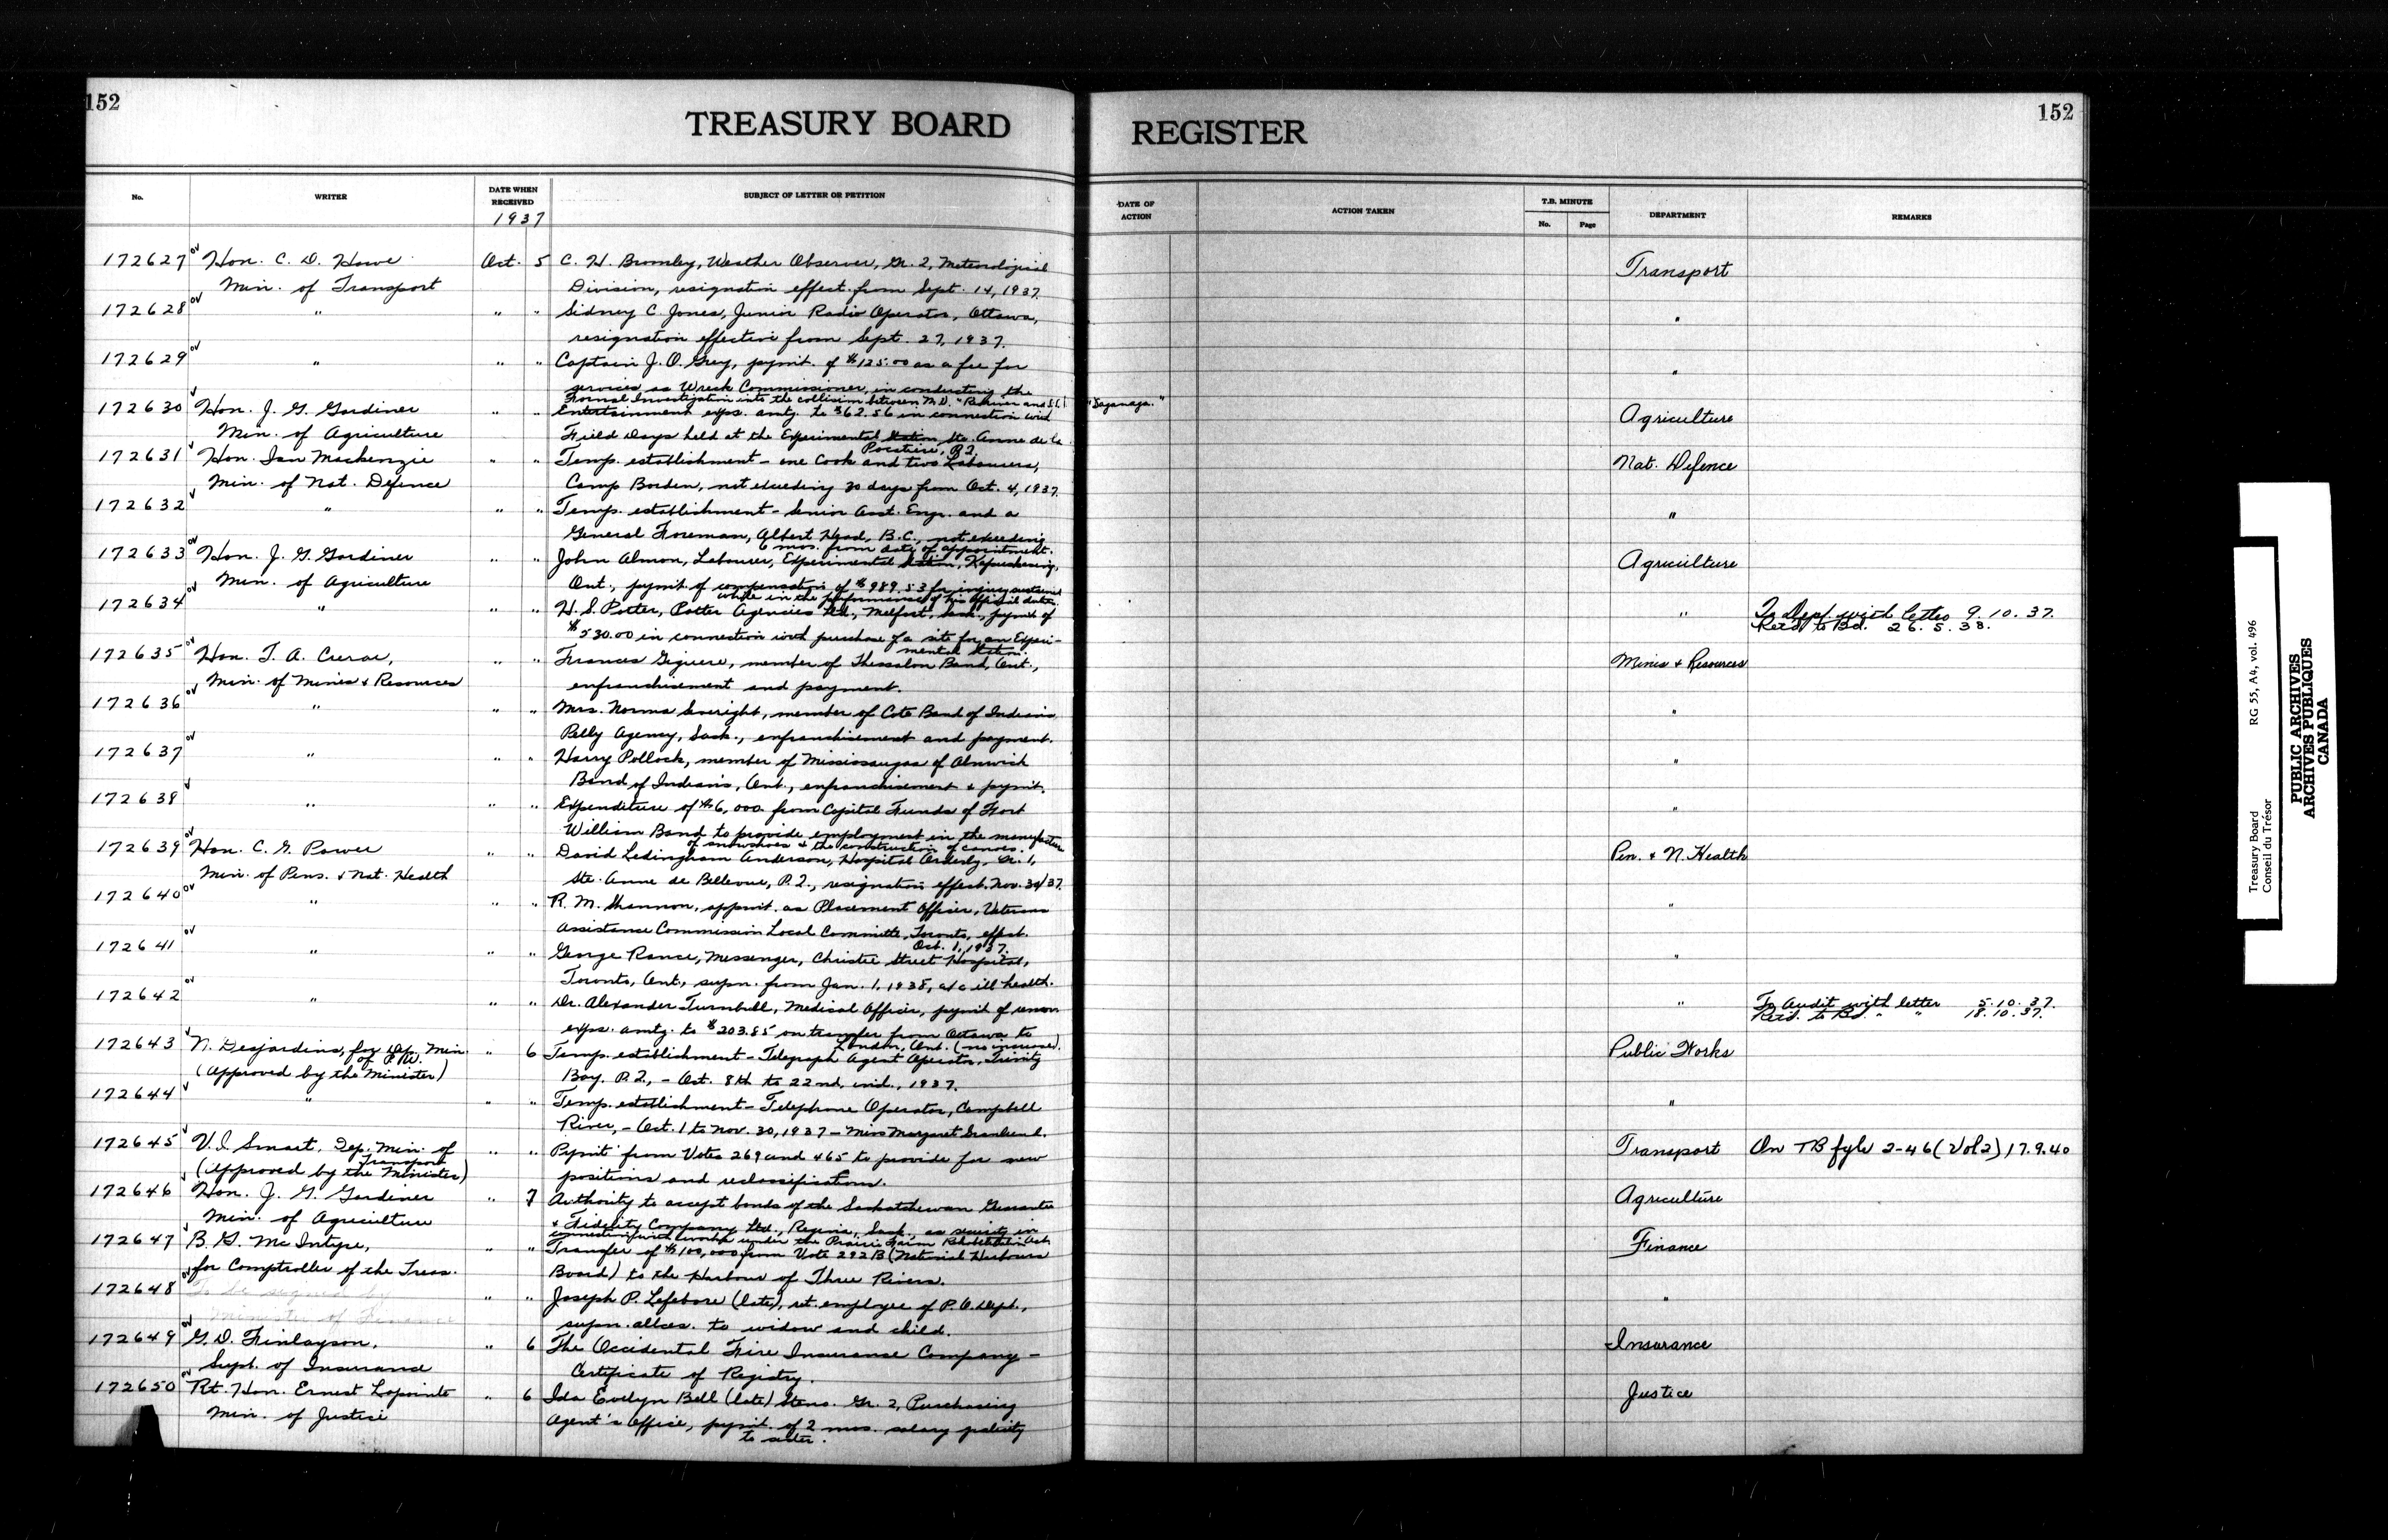 152
TREASURY BOARD REGISTER
152
No. WRITER DATE WHEN RECEIVED SUBJECT OF LETTER OR PETITION DATE OF ACTION ACTION TAKEN T.B. MINUTE No. Page DEPARTMENT REMARKS
1937
172627 Hon. C. D. Howe Oct. 5 C. H. Bromley, Weather Observer, Gr. 2, Meteorological Transport
Min. of Transport Division, resignation effect. from Sept. 14, 1937.
172628 " " " Sidney C. Jones, Junior Radio Operator, Ottawa, "
resignation effective from Sept. 27, 1937.
172629 " " " Captain J. O. Grey, paymt. of $125.00 as a fee for "
services as Wreck Commissioner in conducting the
Formal Investigation into the collision between M.V. and S.S. "Saganaga."
172630 Hon. J. G. Gardiner " " Entertainment exps. amtg. to $62.56 in connection with Agriculture
Min. of Agriculture Field Days held at the Experimental Station, Ste. Anne de la
Pocatiere, P.Q.
172631 Hon. Ian Mackenzie " " Temp. establishment - one Cook and two Labourers, Nat. Defence
Min. of Nat. Defence Camp Borden, not exceeding 30 days from Oct. 4, 1937.
172632 " " " Temp. establishment - Senior Asst. Engr. and a "
General Foreman, Albert Head, B.C., not exceeding
6 mos. from date of appointment.
172633 Hon. J. G. Gardiner " " John Almon, Labourer, Experimental Station, Kapuskasing, Agriculture
Min. of Agriculture Ont., paymt. of compensation of $989.53 for injury sustained
while in the performance of his official duties.
172634 " " " H. S. Potter, Potter Agencies Ltd., Melfort, Sask., paymt. of " To Dept. with letter 9.10.37.
$530.00 in connection with purchase of a site for an Experi- Retd. to Bd. 26.5.38.
mental Station.
172635 Hon. T. A. Crerar, " " Frances Giguere, member of Thessalon Band, Ont., Mines & Resources
Min. of Mines & Resources enfranchisement and payment.
172636 " " " Mrs. Norma Severight, member of Cote Band of Indians "
Pelly Agency, Sask., enfranchisement and payment.
172637 " " " Harry Pollock, member of Mississaugas of Alnwick "
Band of Indians, Ont., enfranchisement & paymt.
172638 " " " Expenditure of $6,000. from Capital Funds of Fort "
William Band to provide employment in the manufacture
of snowshoes & the construction of canoes.
172639 Hon. C. G. Power " " David Ledingham Anderson, Hospital Orderly, Gr. 1, Pen. & N. Health
Min. of Pens. & Nat. Health Ste. Anne de Bellevue, P.Q., resignation effect. Nov. 30/37.
172640 " " " R. M. Shannon, appmt. as Placement Officer, Veterans "
Assistance Commission Local Committee, Toronto, effect.
Oct. 1, 1937.
172641 " " " George Rance, Messenger, Christie Street Hospital, "
Toronto, Ont., supn. from Jan. 1, 1938, a/c ill health.
172642 " " " Dr. Alexander Turnbull, Medical Officer, paymt of remov. " To Audit with letter 5.10.37.
exps. amtg. to $203.85 on transfer from Ottawa to Retd. to Bd. " " 18.10.37.
London, Ont. (no increase).
172643 N. Desjardins, for Dep. Min. " 6 Temp. establishment - Telegraph Agent Operator, Trinity Public Works
of P.W.
(Approved by the Minister) Bay, P.Q., - Oct. 8th to 22nd, incl., 1937.
172644 " " " Temp. establishment - Telephone Operator, Campbell "
River, - Oct. 1 to Nov. 30, 1937 - Miss Margaret
172645 V. I. Smart, Dep. Min. of " " Paymt from Votes 269 and 465 to provide for new Transport On TB fyle 2-46 (Vol 2) 17.9.40
Transport
(Approved by the Minister) positions and reclassifications.
172646 Hon. J. G. Gardiner " 7 Authority to accept bonds of the Saskatchewan Guarantee Agriculture
Min. of Agriculture & Fidelity Company Ltd., Regina, Sask., as security in
connection with work under the Prairie Farm Rehabilitation Act.
172647 B. G. McIntyre, " " Transfer of $100,000 from Vote 292B (National Harbours Finance
for Comptroller of the Treas. Board) to the Harbour of Three Rivers.
172648 To be signed by " " Joseph P. Lefebvre (late), ret. employee of P.O. Dept., "
Minister of Finance supn. allces. to widow and child.
172649 G. D. Finlayson, " 6 The Occidental Fire Insurance Company - Insurance
Supt. of Insurance Certificate of Registry.
172650 Rt. Hon. Ernest Lapointe " 6 Ida Evelyn Bell (late) Steno. Gr. 2, Purchasing Justice
Min. of Justice Agent's Office, paymt. of 2 mos. salary gratuity
to sister.
Treasury Board RG 55, A4, vol. 496
Conseil du Trésor
PUBLIC ARCHIVES
ARCHIVES PUBLIQUES
CANADA